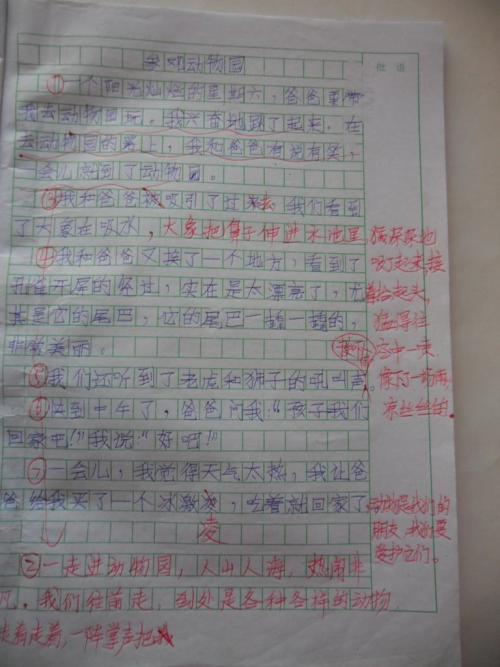 参观动物园
批语
①一个阳光灿烂的星期六,爸爸要带
我去动物园玩。我兴奋地跳了起来。在
去动物园的路上,我和爸爸有说有笑,一
会儿就到了动物园。
③我和爸爸被吸引了过去 我们看到
了大象在吸水,大象把鼻子伸进水池里,
④我和爸爸又换了一个地方,看到了
孔雀开屏的经过,实在是太漂亮了,尤
其是它的尾巴,它的尾巴一翘一翘的,
非常美丽。
⑤我们还听到了老虎和狮子的吼叫声。
⑥快到中午了,爸爸问我:“孩子我们
回家吧!”我说:“好吧!”
⑦一会儿,我觉得天气太热,我让爸
爸给我买了一个冰激凌,吃着就回家了
凌
②一走进动物园,人山人海,热闹非
凡。我们往前走,到处是各种各样的动物,
走着走着,一阵掌声把
吸了起来,接
着抬起头,
空中一
凉丝丝的。
动物是我们的
朋友,我们要
爱护它们。